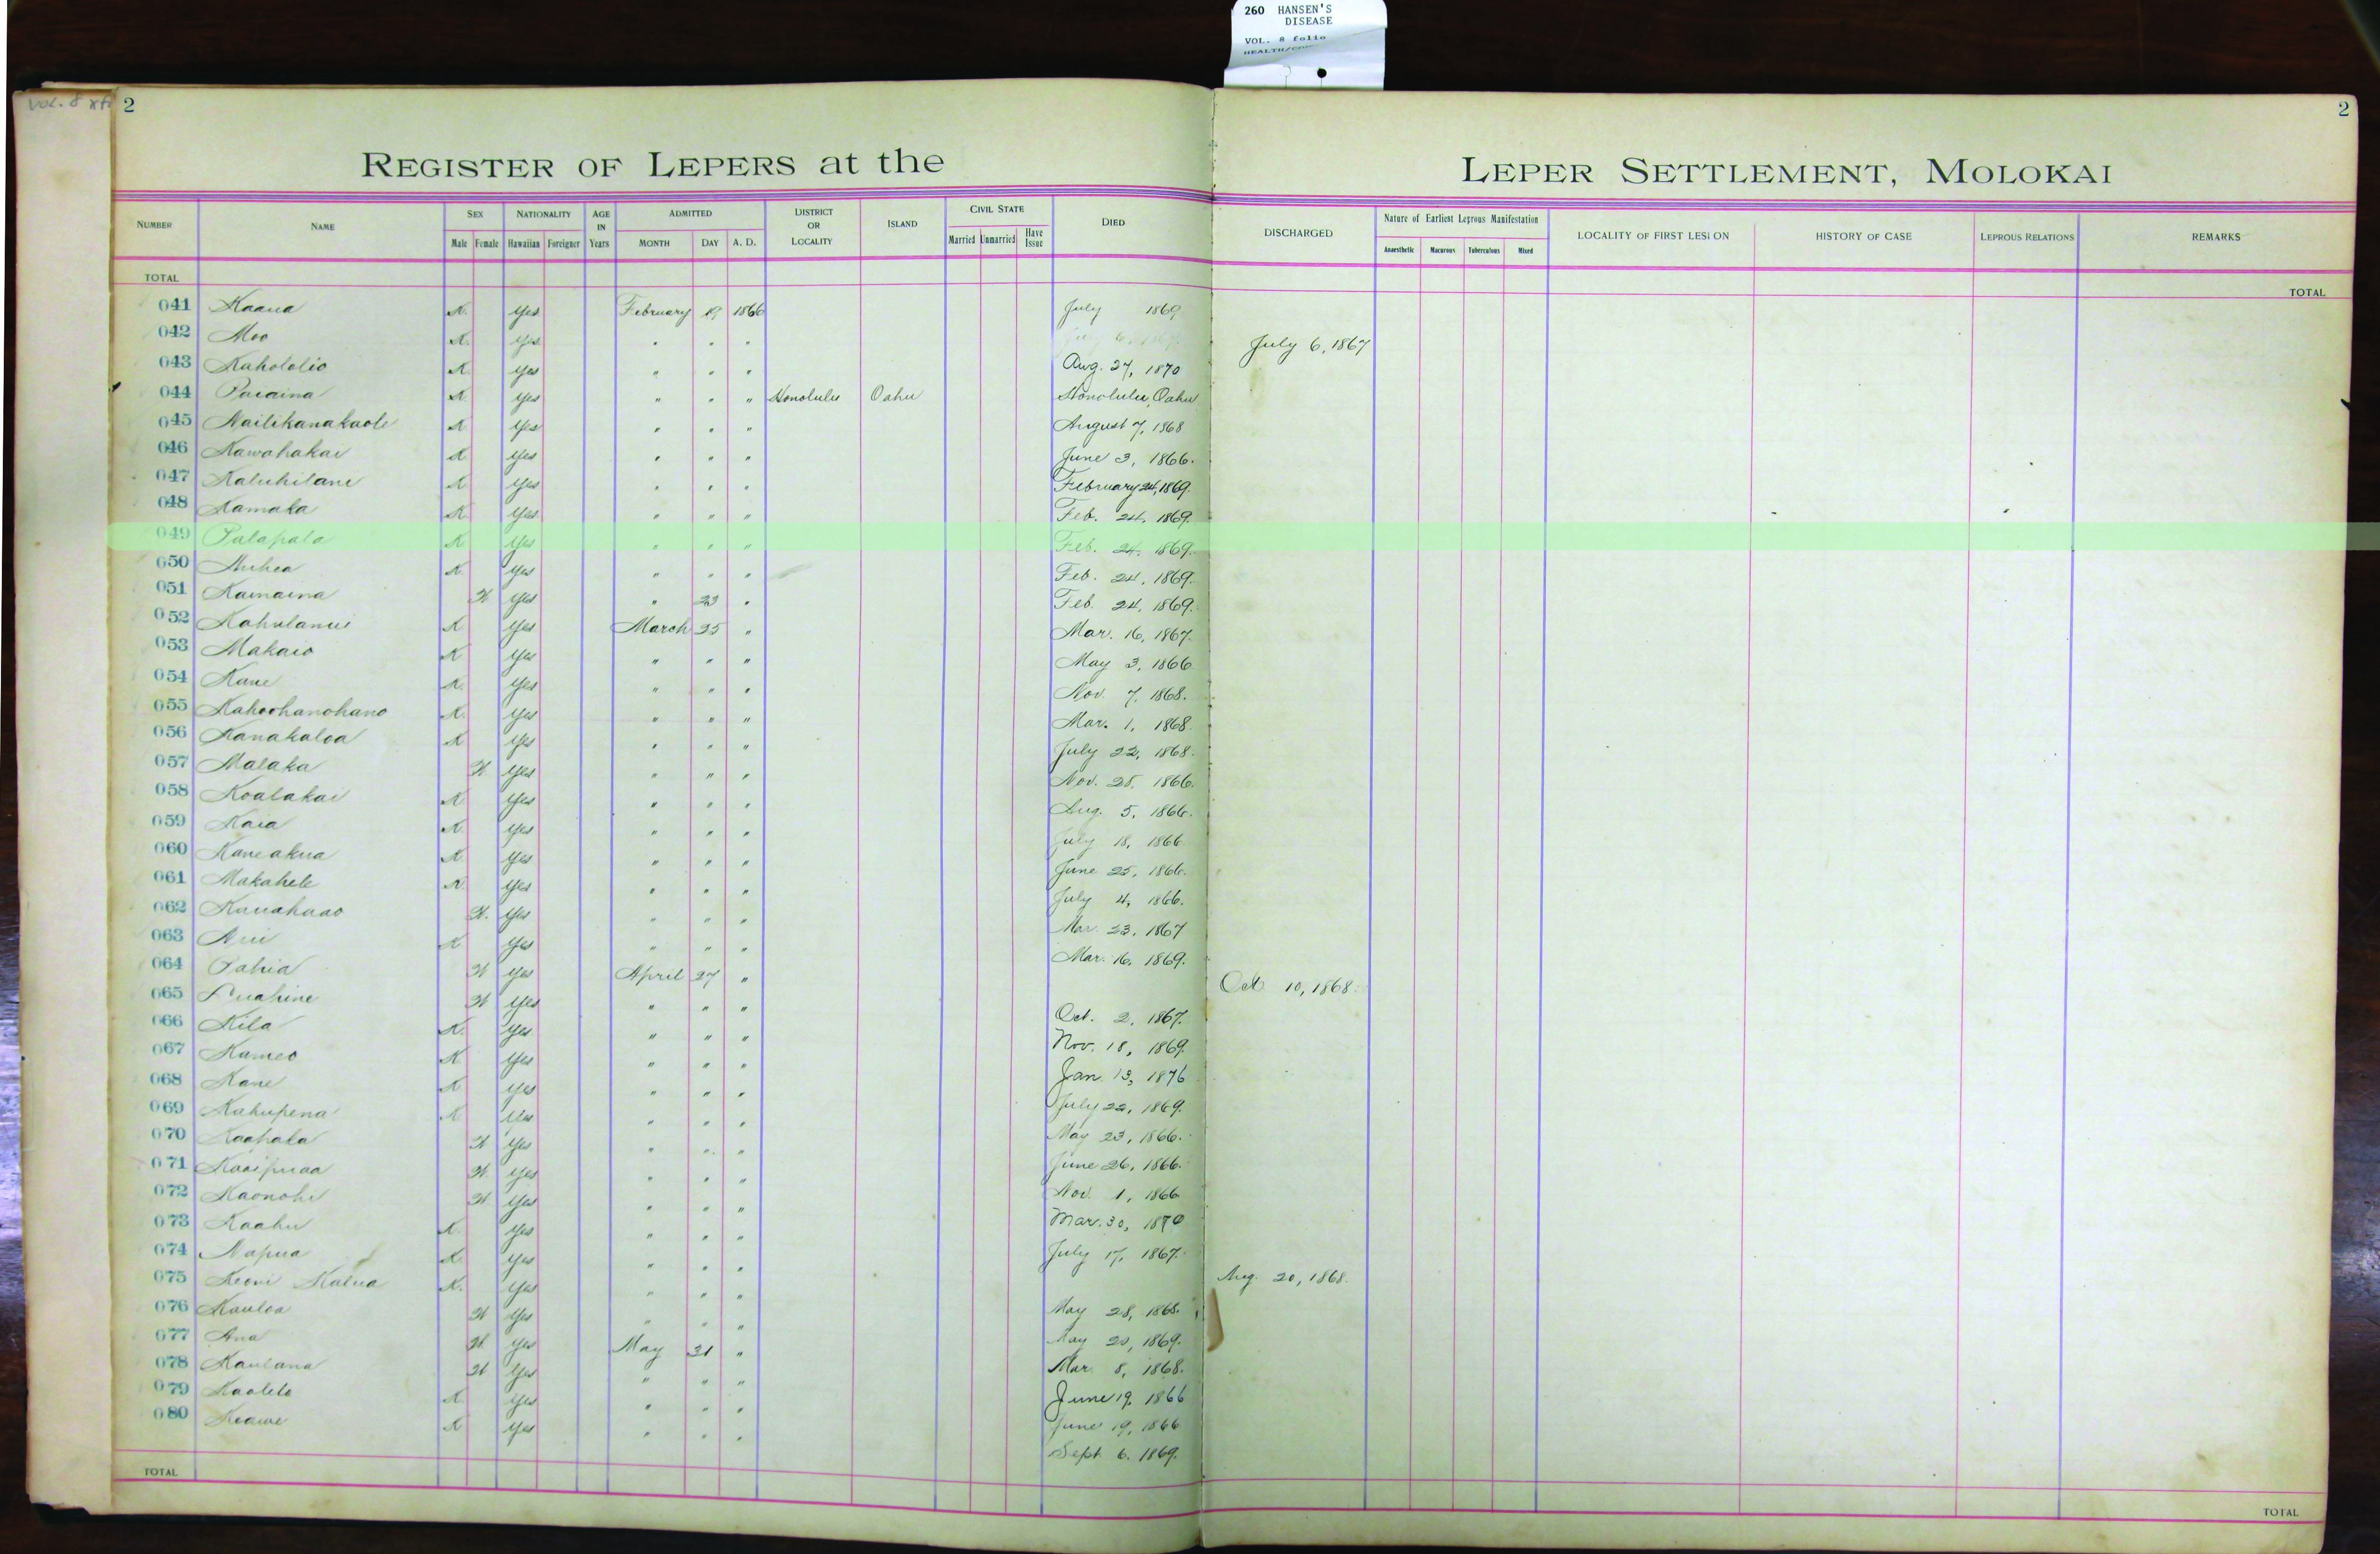 260 HANSEN'S
DISEASE
VOL. 8 folio
VOL. 8
2
2
REGISTER OF LEPERS at the LEPER SETTLEMENT, MOLOKAI
NUMBER NAME SEX NATIONALITY AGE IN Years ADMITTED DISTRICT OR LOCALITY ISLAND CIVIL STATE DIED DISCHARGED Nature of Earliest Leprous Manifestation LOCALITY OF FIRST LESION HISTORY OF CASE LEPROUS RELATIONS REMARKS
Male Female Hawaiian Foreigner MONTH DAY A. D. Married Unmarried Have Issue Anaesthetic Macurous Tuberculous Mixed
TOTAL TOTAL
041 Kaana K. Yes February 19 1866 July 1869
042 Moo K. Yes " " " July 6, 1867
043 Kahololio K. Yes " " " Aug. 27, 1870
044 Paraina K. Yes " " " Honolulu Oahu Honolulu, Oahu
045 Nailikanakaole K Yes " " " August 7, 1868
046 Kawahakai K Yes " " " June 3, 1866.
047 Kaluhilani K Yes " " " February 24, 1869.
048 Kamaka K Yes " " " Feb. 24, 1869.
049 Palapala K. Yes " " " Feb. 24, 1869.
050 Auhea K. Yes " " " Feb. 24, 1869.
051 Kamaina W Yes " 23 " Feb. 24, 1869.
052 Kahulanui K. Yes March 25 " Mar. 16, 1867.
053 Makaio K Yes " " " May 3, 1866
054 Kane K. Yes " " " Nov. 7, 1868.
055 Kahoohanohano K. Yes " " " Mar. 1, 1868.
056 Kanakaloa K Yes " " " July 22, 1868.
057 Malaka W. Yes " " " Nov. 28, 1866.
058 Koalakai K. Yes " " " Aug. 5, 1866.
059 Kaia K. Yes " " " July 18, 1866
060 Kaneakua K. Yes " " " June 25, 1866.
061 Makahele K. Yes " " " July 4, 1866.
062 Kauahaao W. Yes " " " Mar. 23, 1867
063 Nui K Yes " " " Mar. 16, 1869.
064 Pahia W Yes April 27 " Oct 10, 1868.
065 Puahine W Yes " " " Oct. 2, 1867.
066 Kila K. Yes " " " Nov. 18, 1869.
067 Kameo K Yes " " " Jan. 13, 1876
068 Kane K Yes " " " July 22, 1869.
069 Kahupena K Yes " " " May 23, 1866.
070 Kaahala W Yes " " " June 26, 1866.
071 Kaaipuaa W. Yes " " " Nov. 1, 1866
072 Kaonohi W Yes " " " Mar. 30, 1870
073 Kaahu K. Yes " " " July 17, 1867.
074 Napua K Yes " " "
075 Keoni Kalua K. Yes " " " Aug. 20, 1868.
076 Kauloa W Yes " " " May 28, 1868.
077 Ana W. Yes May 31 " May 20, 1869.
078 Kaulana W Yes " " " Mar. 8, 1868.
079 Kaolelo K. Yes " " " June 19, 1866
080 Keawe K Yes " " " June 19, 1866
Sept. 6. 1869.
TOTAL TOTAL